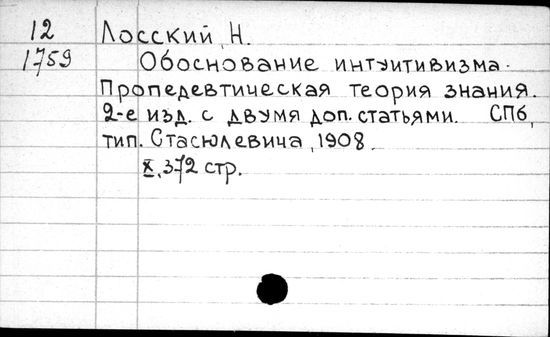 12 Лосский, Н.
1759 Обоснование интуитивизма.
Пропедевтическая теория знания.
2-е изд. с двумя доп. статьями. СПб,
тип. Стасюлевича, 1908.
X, 372 стр.